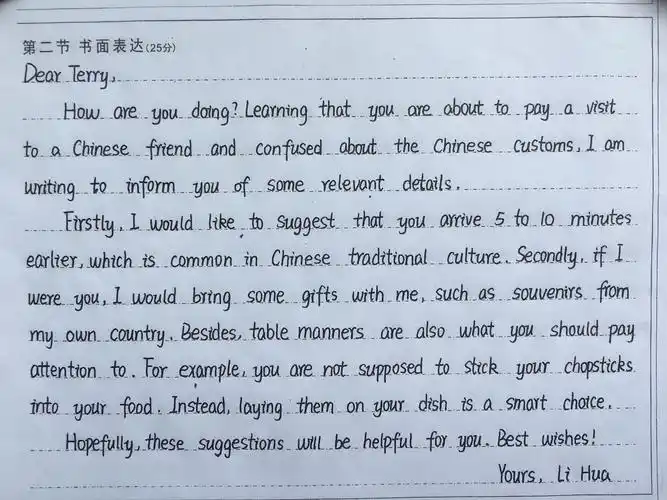 第二节 书面表达(25分)
Dear Terry,
How are you doing? Learning that you are about to pay a visit
to a Chinese friend and confused about the Chinese customs, I am
writing to inform you of some relevant details.
Firstly, I would like to suggest that you arrive 5 to 10 minutes
earlier, which is common in Chinese traditional culture. Secondly, if I
were you, I would bring some gifts with me, such as souvenirs from
my own country. Besides, table manners are also what you should pay
attention to. For example, you are not supposed to stick your chopsticks
into your food. Instead, laying them on your dish is a smart choice.
Hopefully, these suggestions will be helpful for you. Best wishes!
Yours, Li Hua